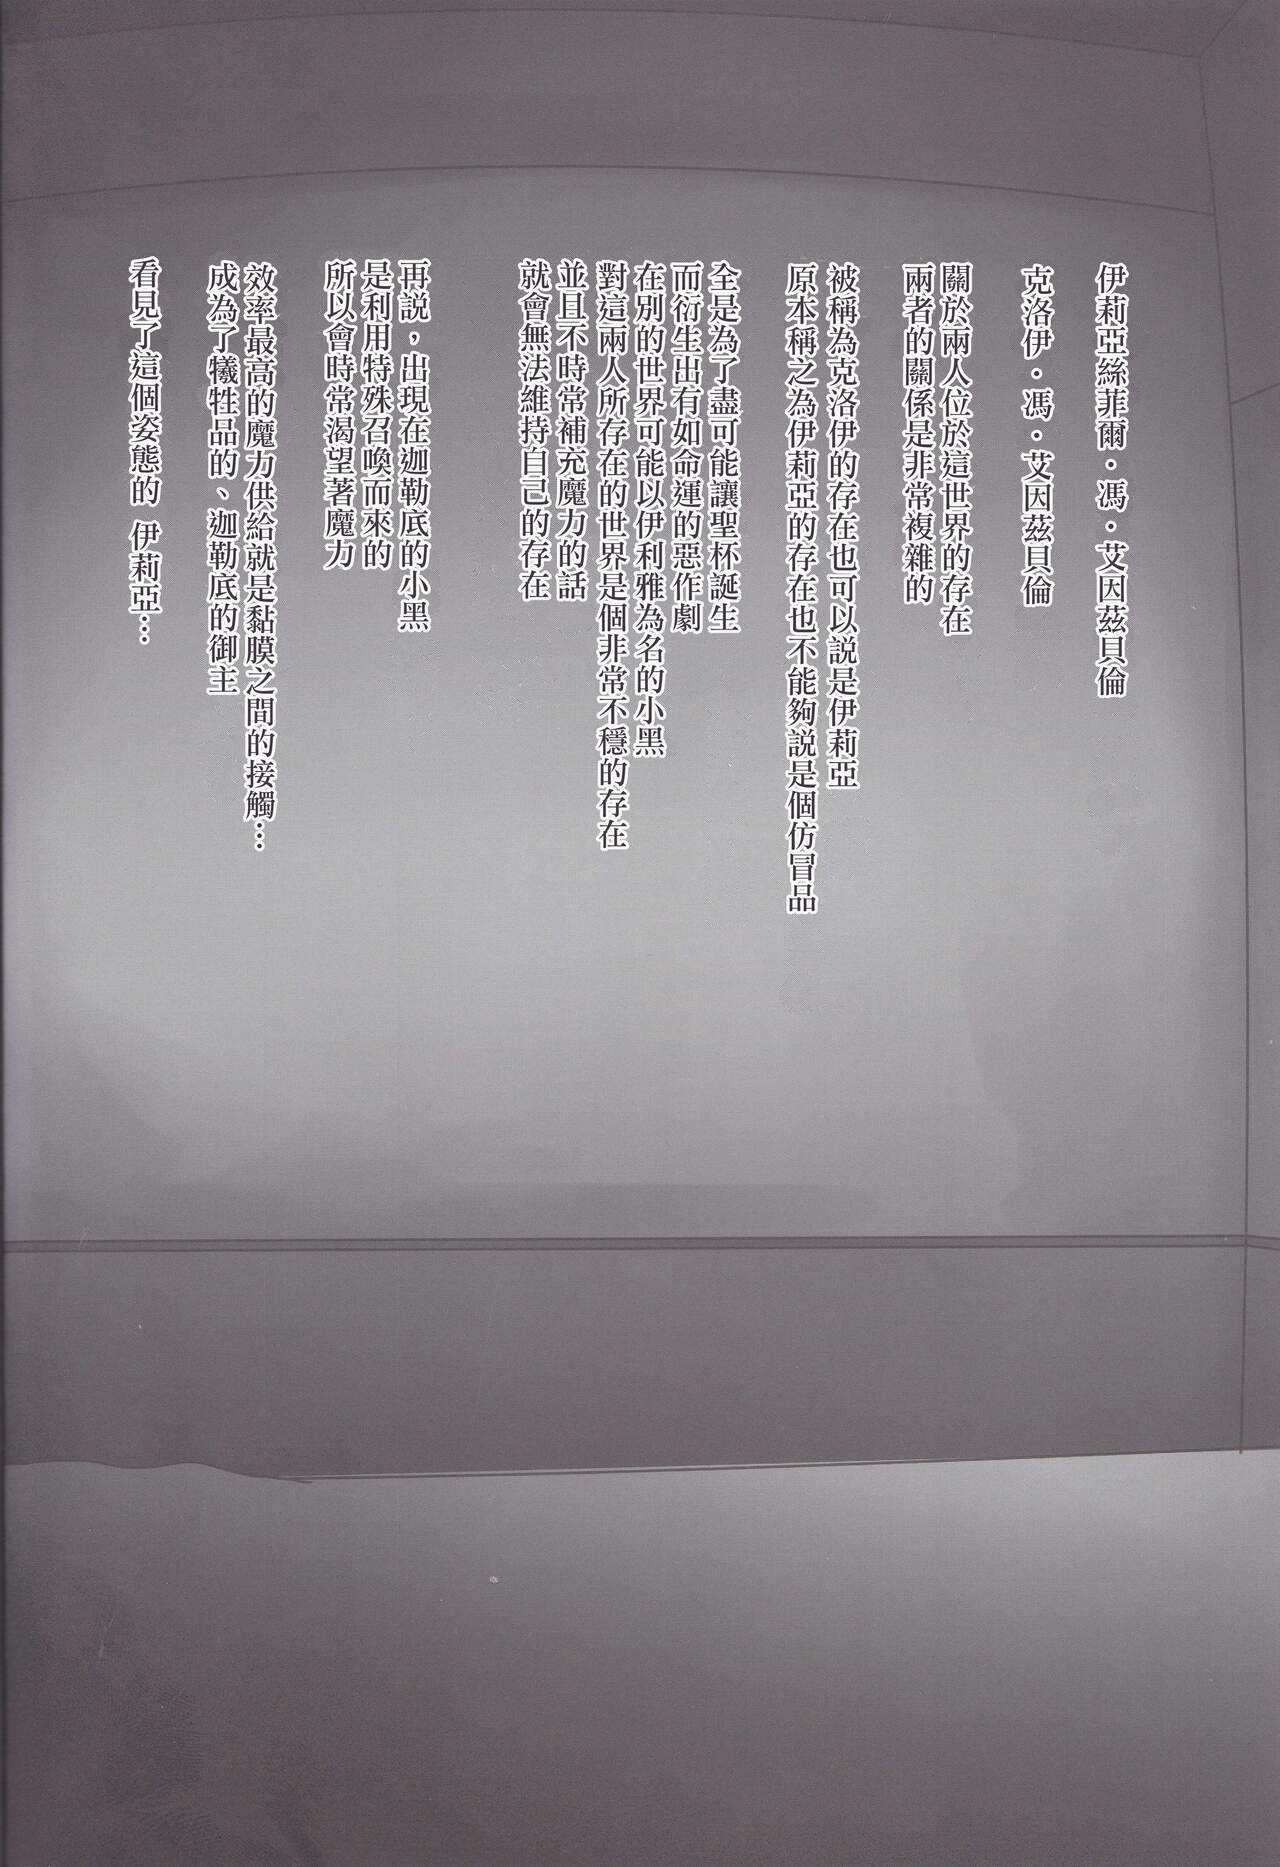 伊莉亞絲菲爾・馮・艾因茲貝倫
克洛伊・馮・艾因茲貝倫
關於兩人位於這世界的存在
兩者的關係是非常複雜的
被稱為克洛伊的存在也可以說是伊莉亞
原本稱之為伊莉亞的存在也不能夠說是個仿冒品
全是為了盡可能讓聖杯誕生
而衍生出有如命運的惡作劇
在別的世界可能以伊利雅為名的小黑
對這兩人所存在的世界是個非常不穩的存在
並且不時常補充魔力的話
就會無法維持自己的存在
再說，出現在迦勒底的小黑
是利用特殊召喚而來的
所以會時常渴望著魔力
效率最高的魔力供給就是黏膜之間的接觸…
成為了犧牲品的、迦勒底的御主
看見了這個姿態的 伊莉亞…